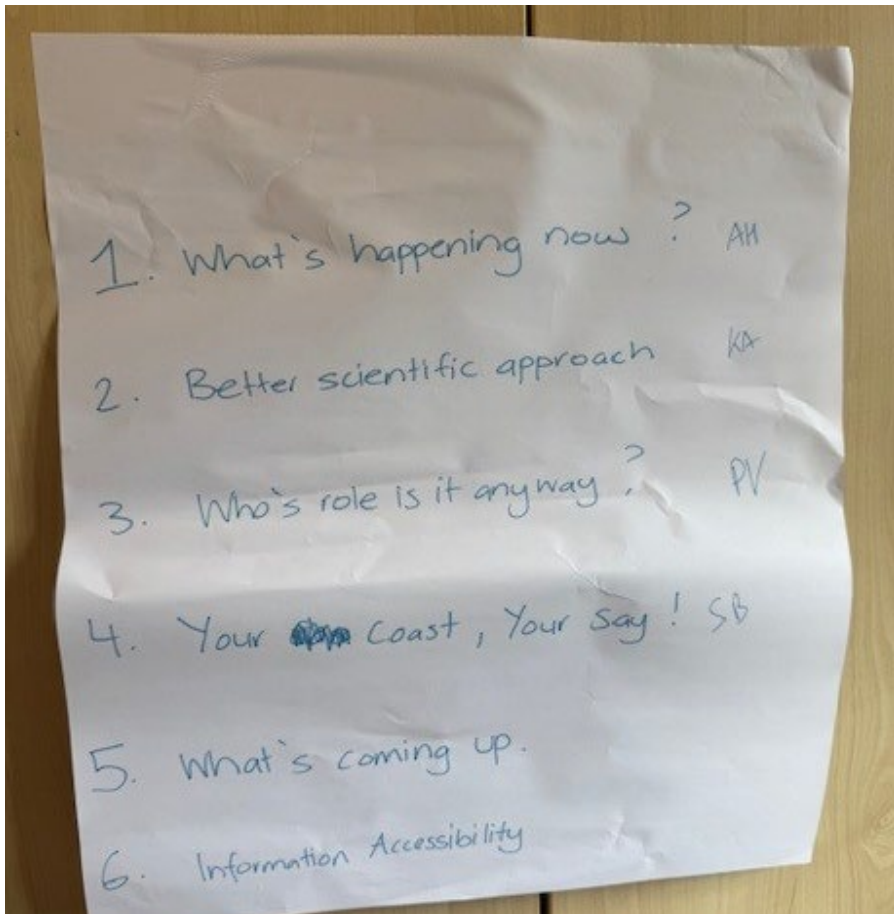 1. What's happening now ? AH
2. Better scientific approach KA
3. Who's role is it anyway ? PV
4. Your Coast, Your Say ! SB
5. What's coming up.
6. Information Accessibility